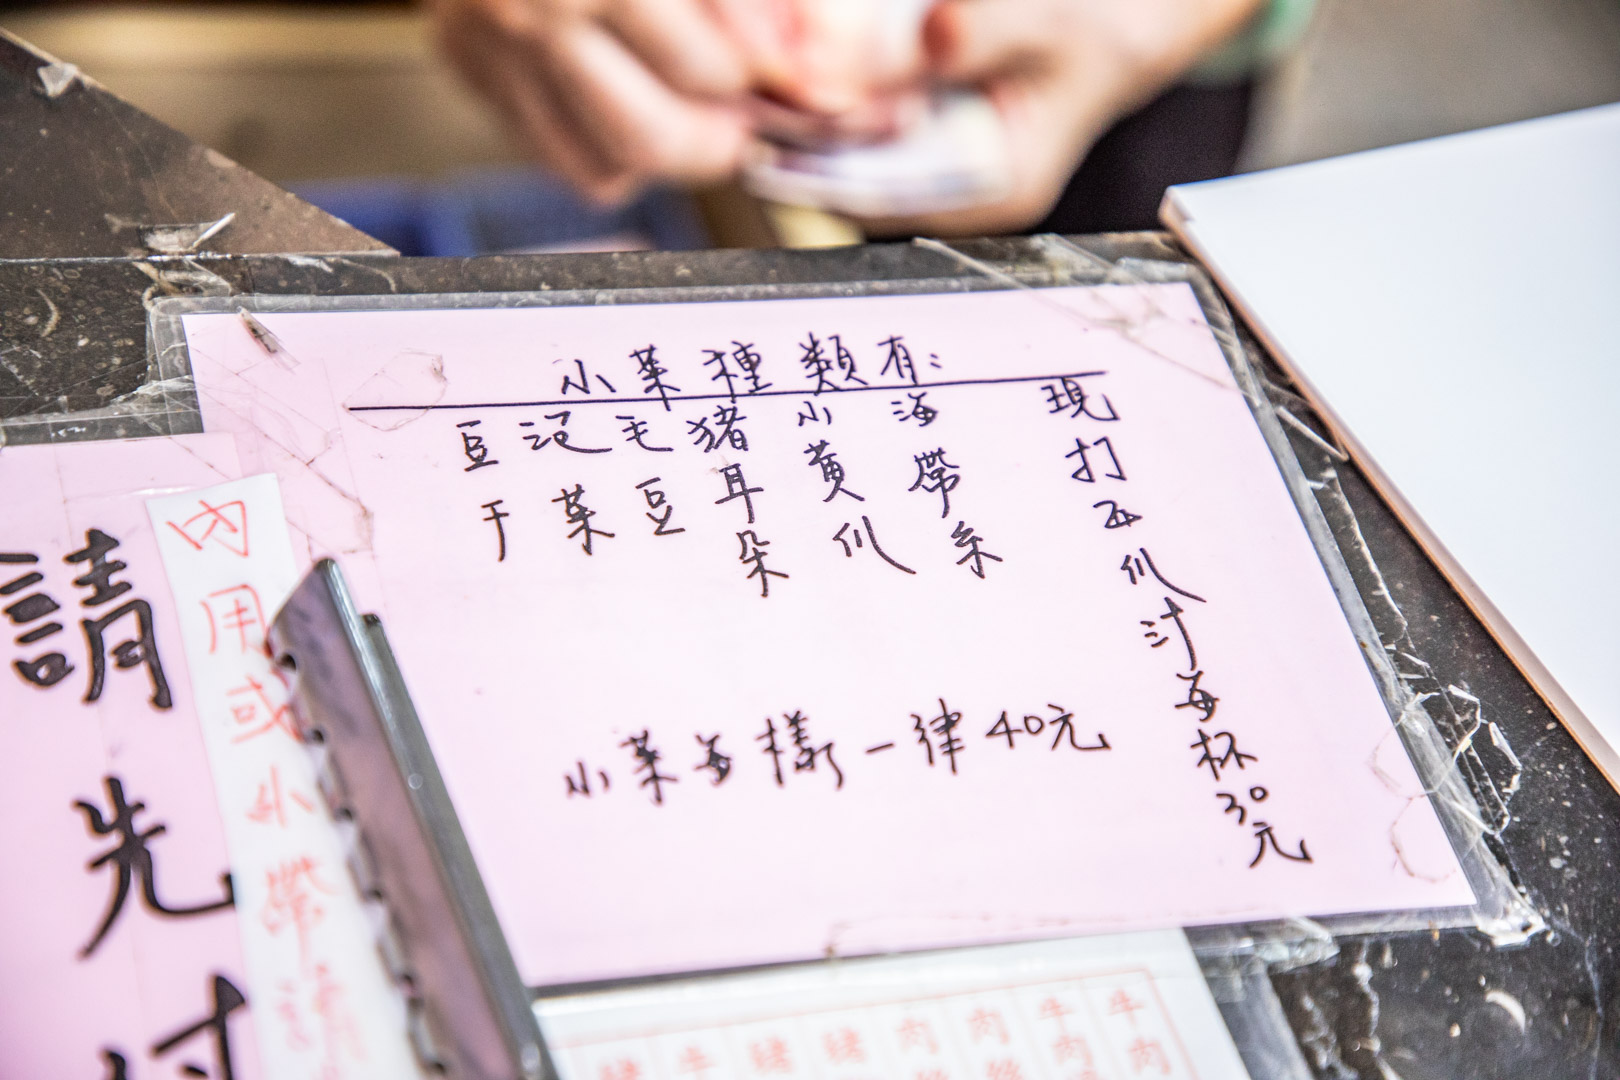 小菜種類有:
現打西瓜汁每杯30元
海帶糸
小黃瓜
猪耳朵
毛豆
泡菜
豆干
小菜每樣一律40元
內用或外帶請
請先付
牛肉
牛肉
肉絲
肉絲
豬
豬
牛
豬